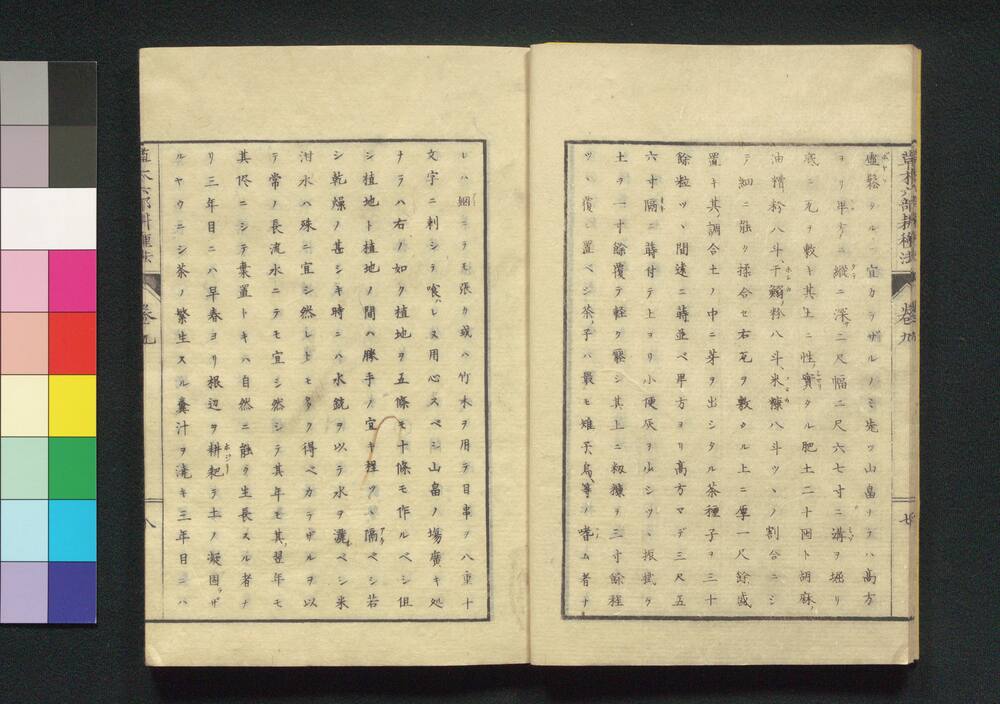 虚鬆タル ニ宜カラザルノミ先ツ山畠ナラハ高方
ヨリ卑方ニ縦ニ深サ二尺幅二尺六七寸ニ溝ヲ堀リ
底ニ瓦ヲ敷キ其上ニ性ノ實タル肥土二十固ト胡麻ノ
油糟粉八斗、干鰯ノ粉八斗、米糠八斗ツヽノ割合ニシ
テ細ニ能ク揉合セ右瓦ヲ敷タル上ニ厚一尺餘盛
置キ其調合土ノ中ニ芽ヲ出シタル茶種子ヲ三十
餘粒ツヽ間遠ニ蒔並ベ卑方ヨリ高方マデ三尺五
六寸隔ニ蒔付テ上ヨリ小便灰ヲ少シツヽ振掛ケ
土ヲ一寸餘覆テ軽ク壓シ其上ニ籾糠ヲ三寸餘程
ツヽ覆ヒ置ベシ茶ノ子ハ最モ雉子烏等ノ啄ム者ナ
レハ綱ニテモ張ルカ或ハ竹木ヲ用テ目串ヲ八重十
文字ニ刺シテ喰ハレヌ用心スベシ山畠ノ場廣キ処
ナラハ右ノ如ク植地ヲ五條モ十條モ作ルベシ但
シ植地ト植地ノ間ハ勝手ノ宜キ程ツヽ隔ベシ若
シ乾燥ノ甚シキ時ニハ水銃ヲ以テ水ヲ灑ベシ米
泔水ハ殊ニ宜シ然レトモ多ク得ベカラザルヲ以
テ常ノ長流水ニテモ宜シ然シテ其年モ其翌年モ
其侭ニシテ棄置トキハ自然ニ能ク生長スル者ナ
リ三年目ニハ早春ヨリ根辺ヲ耕耙テ土ノ凝固ラザ
ルヤウニシ茶ノ繁生スル糞汁ヲ澆キ三年目ニハ
草木六部耕種法
卷九